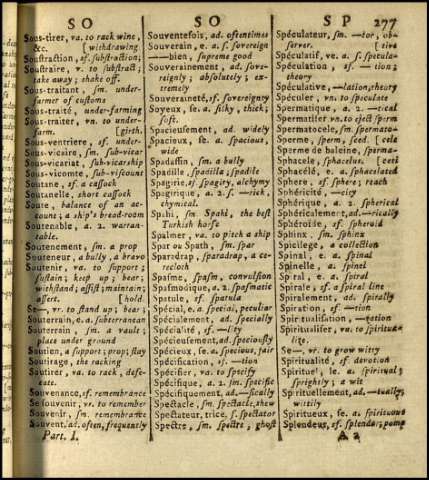 SO
SO
SP
277
Sous-tirer, va. to rack wine,
&c. [withdrawing
Soustraction, sf. substraction;
Soustraire, va. to substract;
take away; shake off.
Sous-traitant, sm. under-
farmer of customs
Sous-traité, under-farming
Sous-traiter, va. to under-
farm. [girth.
Sous-ventriere, sf. under-
Sous-vicaire, sm. sub-vicar
Sous-vicariat, sub-vicarship
Sous-vicomte, sub-viscount
Soutane, sf. a cassock
Soutanelle, short cassock
Soute, balance of an ac-
count; a ship's bread-room
Soutenable, a. 2. warran-
table.
Soutenement, sm. a prop
Souteneur, a bully, a bravo
Soutenir, va. to support;
sustain; keep up; bear;
withstand; assist; maintain;
assert. [hold.
Se—, vr. to stand up; bear;
Souterrain, e. a. subterranean
Souterrain, sm. a vault;
place under ground
Soutien, a support; prop; stay
Soutirage, the racking
Soutirer, va. to rack, defe-
cate.
Souvenance, sf. remembrance
Se souvenir, vr. to remember
Souvenir, sm. remembrance
Souvent, ad. often, frequently
Part. I.
Souventefois, ad. oftentimes
Souverain, e. a. s. sovereign
——bien, supreme good
Souverainement, ad. sove-
reignly; absolutely; ex-
tremely
Souveraineté, sf. sovereignty
Soyeux, se. a. silky, thick;
soft.
Spacieusement, ad. widely
Spacieux, se. a. spacious,
wide
Spadassin, sm. a bully
Spadille, spadilla; spadile
Spagirie, sf. spagiry, alchymy
Spagirique, a. 2. s. —rick,
chymical.
Spahi, sm. Spahi, the best
Turkish horse
Spalmer, va. to pitch a ship
Spar ou Spath, sm. spar
Sparadrap, sparadrap, a ce-
recloth
Spasme, spasm, convulsion
Spasmodique, a. 2. spasmatic
Spatule, sf. spatula
Spécial, e, a. special, peculiar
Spécialement, ad. specially
Spécialité, sf. —lity
Spécieusement, ad. speciously
Spécieux, se. a. specious, fair
Spécification, sf. —tion
Spécifier, va. to specify
Spécifique, a. 2. sm. specific
Spécifiquement, ad. —fically
Spectacle, sm. spectacle, shew
Spectateur, trice, s. spectator
Spectre, sm. spectre, ghost
Spéculateur, sm. —tor, ob-
server. [tive
Spéculatif, ve. a. s. specula-
Spéculation, sf. —tion;
theory
Spéculative, —lation, theory
Spéculer, vn. to speculate
Spermatique, a. 2. —tical
Spermatiser vn. to eject sperm
Spermatocele, sm. spermato-
Sperme, sperm, seed. [cele
Sperme de baleine, sperma-
Sphacele, sphacelus. [ceti
Sphacélé, e. a. sphacelated
Sphere, sf. sphere; reach
Sphéricité, —city
Sphérique, a. 2. spherical
Sphériquement, ad. —rically
Sphéroïde, sf. spheroid
Sphinx, sm. sphinx
Spicilege, a collection
Spinal, e. a. spinal
Spinelle, a. spinel
Spiral, e. a. spiral
Spirale, sf. a spiral line
Spiralement, ad. spirally
Spiration, sf —tion
Spiritualisation, —tion
Spiritualiser, va. to spiritua-
lize.
Se—, vr. to grow witty
Spiritualité, sf. devotion
Spirituel, le. a. spiritual;
sprightly; a wit
Spirituellement, ad. —tually,
wittily
Spiritueux, se. a. spirituous
Splendeur, sf. splendor; pomp
A a